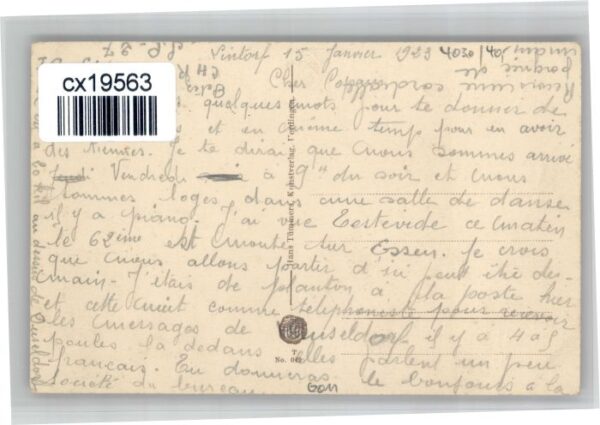 cx19563
Lintorf 15 Janvier 1923
4030/40
Cher
quelques mots pour te donner de
et en même temps pour en avoir
des tiennes. Je te dirai que nous sommes arrivé
Vendredi à 9h du soir et nous
sommes logés dans une salle de danse
il y a piano. J'ai vue Testevide ce matin
le 62ème est monté sur Essen. Je crois
que nous allons partir d'ici peut être de-
main. J'étais de planton à la poste hier
et cette nuit comme telephoniste pour recevoir
les messages de Dusseldorf il y a 4 a 5
poules la dedans elles parlent un peu
francais. Tu donneras le bonjours a la
société du bureau
Recois une
poignée de
main
Hans Tümmers, Kunstverlag, Uerdingen
T
No.
GOM